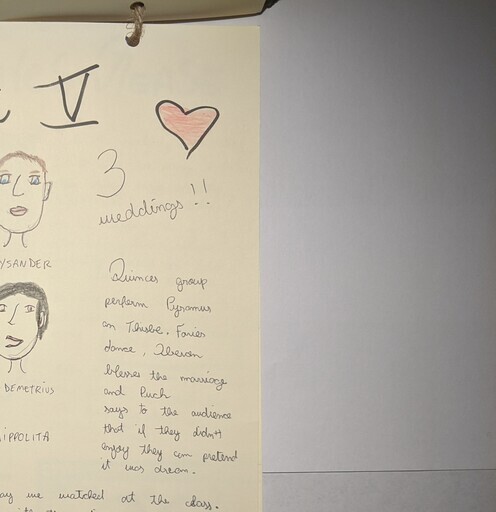 V
3
weddings !!
YSANDER
Quinces group
perform Pyramus
an Thisbe. Faries
dance, Oberon
blesses the marriage
and Puck
says to the audience
that if they didn't
enjoy they can pretend
it was dream.
DEMETRIUS
IPPOLITA
ay we watched at the class.